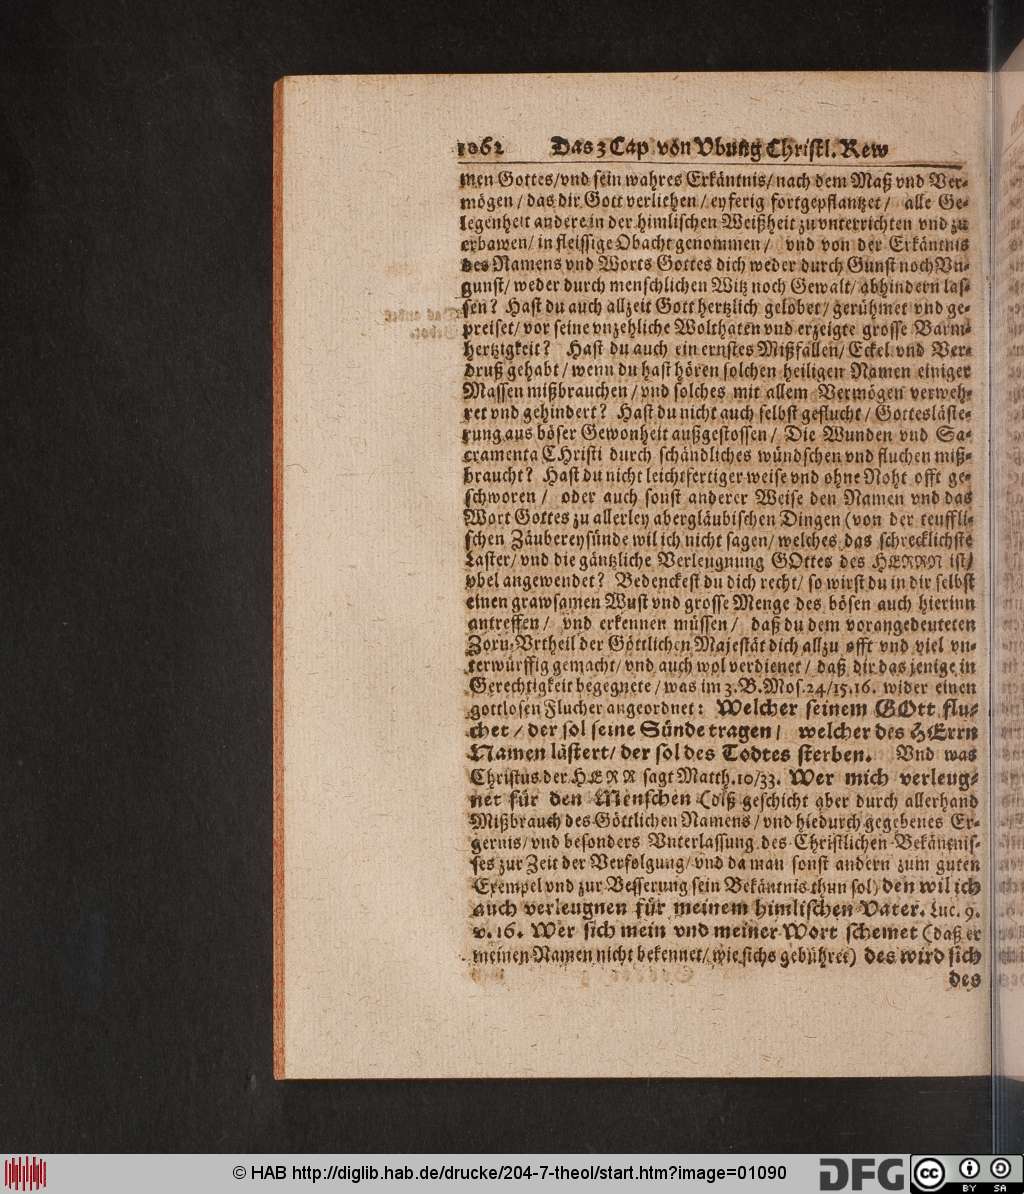 1062 Das 3 Cap von Vbung Christl. Rew
men Gottes/vnd sein wahres Erkäntnis/nach dem Maß vnd Ver-
mögen/das dir Gott verliehen/eyferig fortgepflantzet/ alle Ge-
legenheit andere in der himlischen Weißheit zu vnterrichten vnd zu
erbawen/in fleissige Obacht genommen/ vnd von der Erkäntnis
des Namens vnd Worts Gottes dich weder durch Gunst noch Vn-
gunst/weder durch menschlichen Witz noch Gewalt/abhindern las-
sen? Hast du auch allzeit Gott hertzlich gelobet/gerühmet vnd ge-
preiset/vor seine vnzehliche Wolthaten vnd erzeigte grosse Barm-
hertzigkeit? Hast du auch ein ernstes Mißfallen/Eckel vnd Ver-
druß gehabt/wenn du hast hören solchen heiligen Namen einiger
Massen mißbrauchen/vnd solches mit allem Vermögen verweh-
ret vnd gehindert? Hast du nicht auch selbst geflucht/Gottesläste-
rung aus böser Gewonheit außgestossen/ Die Wunden vnd Sa-
cramenta CHristi durch schändliches wündschen vnd fluchen miß-
braucht? Hast du nicht leichtfertiger weise vnd ohne Noht offt ge-
schworen/ oder auch sonst anderer Weise den Namen vnd das
Wort Gottes zu allerley abergläubischen Dingen (von der teuffli-
schen Zäubereysünde wil ich nicht sagen/welches das schrecklichste
Laster/vnd die gäntzliche Verleugnung GOttes des HERRN ist/
vbel angewendet? Bedenckest du dich recht/so wirst du in dir selbst
einen grawsamen Wust vnd grosse Menge des bösen auch hierinn
antreffen/ vnd erkennen müssen/ daß du dem vorangedeuteten
Zorn-Vrtheil der Göttlichen Majestät dich allzu offt vnd viel vn-
terwürffig gemacht/vnd auch wol verdienet/daß dir das jenige in
Gerechtigkeit begegnete/was im 3. B. Mos. 24/15.16. wider einen
gottlosen Flucher angeordnet: Welcher seinem GOtt flu-
chet/der sol seine Sünde tragen/ welcher des HErrn
Namen lästert/der sol des Todtes sterben. Vnd was
Christus der HERR sagt Matth. 10/33. Wer mich verleug-
net für den Menschen (diß geschicht aber durch allerhand
Mißbrauch des Göttlichen Namens/vnd hiedurch gegebenes Er-
gernis/vnd besonders Vnterlassung des Christlichen Bekäntnis-
ses zur Zeit der Verfolgung/vnd da man sonst andern zum guten
Exempel vnd zur Besserung sein Bekäntnis thun sol) den wil ich
auch verleugnen für meinem himlischen Vater. Luc. 9.
v. 16. Wer sich mein vnd meiner Wort schemet (daß er
meinen Namen nicht bekennet/wie sichs gebühret) des wird sich
des
© HAB http://diglib.hab.de/drucke/204-7-theol/start.htm?image=01090
DFG
cc BY SA